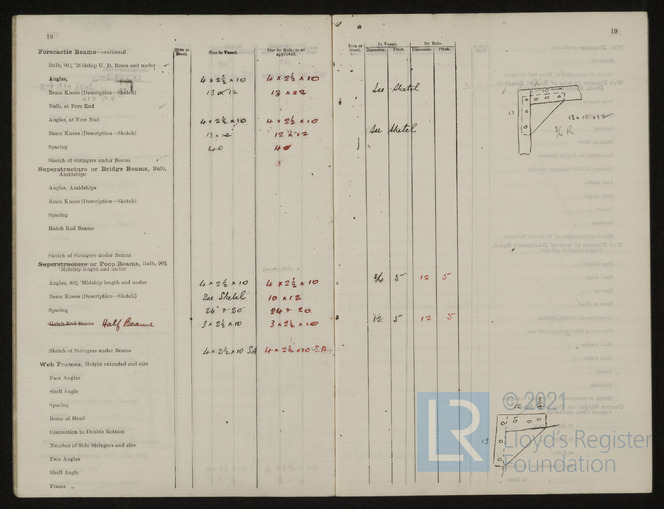 18
Forecastle Beams—continued.
Iron or Steel. Size in Vessel. Size by Rule, or as approved.
Bulb, 90% 'Midship U. D. Beam and under
Angles, 4 x 2½ x 10 4 x 2½ x 10
Beam Knees (Description—Sketch) 13 x 12 13 x 12
Bulb, at Fore End
Angles, at Fore End 4 x 2½ x 10 4 x 2½ x 10
Beam Knees (Description—Sketch) 13 x 12 12 x 12
Spacing 40 40
Sketch of Stringers under Beams
Superstructure or Bridge Beams, Bulb, Amidships
Angles, Amidships
Beam Knees (Description—Sketch)
Spacing
Hatch End Beams
Sketch of Stringers under Beams
Superstructure or Poop Beams, Bulb, 90% 'Midship length and under
Angles, 90% 'Midship length and under 4 x 2½ x 10 4 x 2½ x 10
Beam Knees (Description—Sketch) See Sketch 10 x 12
Spacing 24 + 20 24 + 20
Hatch End Beams Half Beams 3 x 2½ x 10 3 x 2½ x 10
Sketch of Stringers under Beams 4 x 2½ x 10 SA 4 x 2½ x 10 S.A.
Web Frames, Height extended and size
Face Angles
Shell Angle
Spacing
Beam at Head
Connection to Double Bottom
Number of Side Stringers and size
Face Angles
Shell Angle
Frame „
19
Iron or Steel. In Vessel. By Rule.
Diameter. Pitch. Diameter. Pitch.
See Sketch
See Sketch
5 12 5
12 5 12 5
13
13 x 10 x 12
3/6 R
12
13
© 2021
LR
Lloyd's Register
Foundation